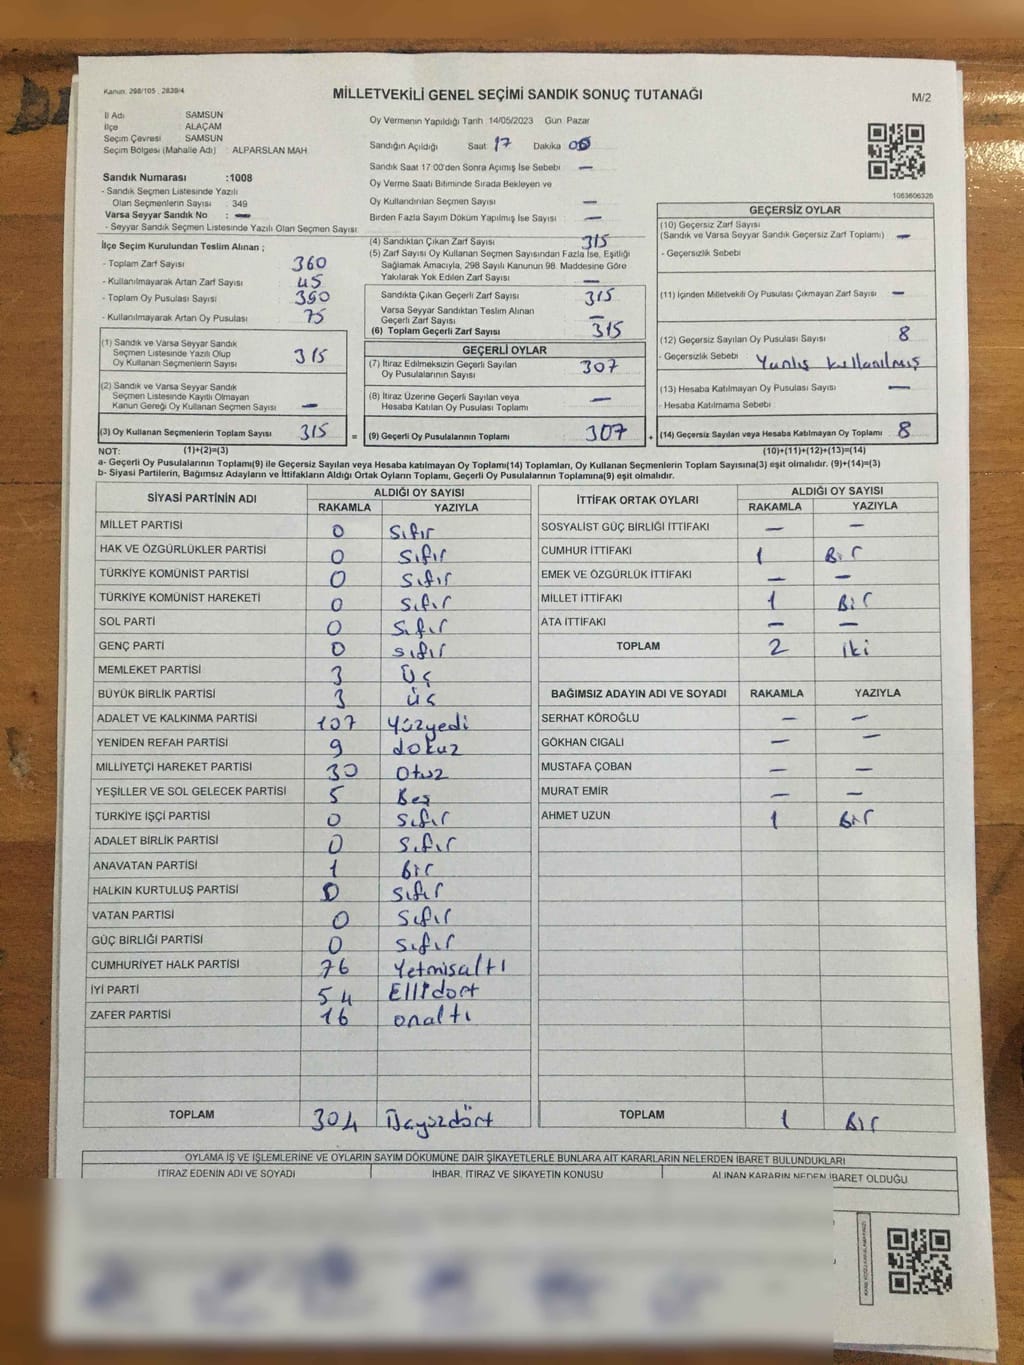 Kanun: 298/105 , 2839/4
MİLLETVEKİLİ GENEL SEÇİMİ SANDIK SONUÇ TUTANAĞI
M/2
İl Adı SAMSUN
İlçe ALAÇAM
Seçim Çevresi SAMSUN
Seçim Bölgesi (Mahalle Adı) : ALPARSLAN MAH
Sandık Numarası :1008
- Sandık Seçmen Listesinde Yazılı
Olan Seçmenlerin Sayısı : 349
Varsa Seyyar Sandık No : —
- Seyyar Sandık Seçmen Listesinde Yazılı Olan Seçmen Sayısı:
Oy Vermenin Yapıldığı Tarih 14/05/2023 Gün Pazar
Sandığın Açıldığı Saat 17 Dakika 00
Sandık Saat 17:00'den Sonra Açımış İse Sebebi —
Oy Verme Saati Bitiminde Sırada Bekleyen ve
Oy Kullandırılan Seçmen Sayısı —
Birden Fazla Sayım Döküm Yapılmış İse Sayısı —
1063606326
İlçe Seçim Kurulundan Teslim Alınan ;
- Toplam Zarf Sayısı 360
- Kullanılmayarak Artan Zarf Sayısı 45
- Toplam Oy Pusulası Sayısı 390
- Kullanılmayarak Artan Oy Pusulası 75
(1) Sandık ve Varsa Seyyar Sandık
Seçmen Listesinde Yazılı Olup
Oy Kullanan Seçmenlerin Sayısı 315
(2) Sandık ve Varsa Seyyar Sandık
Seçmen Listesinde Kayıtlı Olmayan
Kanun Gereği Oy Kullanan Seçmen Sayısı —
(3) Oy Kullanan Seçmenlerin Toplam Sayısı 315 =
(4) Sandıktan Çıkan Zarf Sayısı 315
(5) Zarf Sayısı Oy Kullanan Seçmen Sayısından Fazla İse, Eşitliği
Sağlamak Amacıyla, 298 Sayılı Kanunun 98. Maddesine Göre
Yakılarak Yok Edilen Zarf Sayısı —
Sandıkta Çıkan Geçerli Zarf Sayısı 315
Varsa Seyyar Sandıktan Teslim Alınan
Geçerli Zarf Sayısı —
(6) Toplam Geçerli Zarf Sayısı 315
GEÇERLİ OYLAR
(7) İtiraz Edilmeksizin Geçerli Sayılan
Oy Pusulalarının Sayısı 307
(8) İtiraz Üzerine Geçerli Sayılan veya
Hesaba Katılan Oy Pusulası Toplamı —
(9) Geçerli Oy Pusulalarının Toplamı 307 +
GEÇERSİZ OYLAR
(10) Geçersiz Zarf Sayısı
(Sandık ve Varsa Seyyar Sandık Geçersiz Zarf Toplamı) —
- Geçersizlik Sebebi
(11) İçinden Milletvekili Oy Pusulası Çıkmayan Zarf Sayısı —
(12) Geçersiz Sayılan Oy Pusulası Sayısı 8
- Geçersizlik Sebebi Yanlış kullanılmış
(13) Hesaba Katılmayan Oy Pusulası Sayısı —
- Hesaba Katılmama Sebebi
(14) Geçersiz Sayılan veya Hesaba Katılmayan Oy Toplamı 8
NOT: (1)+(2)=(3) (10)+(11)+(12)+(13)=(14)
a- Geçerli Oy Pusulalarının Toplamı(9) ile Geçersiz Sayılan veya Hesaba katılmayan Oy Toplamı(14) Toplamları, Oy Kullanan Seçmenlerin Toplam Sayısına(3) eşit olmalıdır. (9)+(14)=(3)
b- Siyasi Partilerin, Bağımsız Adayların ve İttifakların Aldığı Ortak Oyların Toplamı, Geçerli Oy Pusulalarının Toplamına(9) eşit olmalıdır.
SİYASİ PARTİNİN ADI ALDIĞI OY SAYISI
RAKAMLA YAZIYLA
MİLLET PARTİSİ 0 Sıfır
HAK VE ÖZGÜRLÜKLER PARTİSİ 0 Sıfır
TÜRKİYE KOMÜNİST PARTİSİ 0 Sıfır
TÜRKİYE KOMÜNİST HAREKETİ 0 Sıfır
SOL PARTİ 0 Sıfır
GENÇ PARTİ 0 sıfır
MEMLEKET PARTİSİ 3 Üç
BÜYÜK BİRLİK PARTİSİ 3 üç
ADALET VE KALKINMA PARTİSİ 107 Yüzyedi
YENİDEN REFAH PARTİSİ 9 dokuz
MİLLİYETÇİ HAREKET PARTİSİ 30 Otuz
YEŞİLLER VE SOL GELECEK PARTİSİ 5 Beş
TÜRKİYE İŞÇİ PARTİSİ 0 Sıfır
ADALET BİRLİK PARTİSİ 0 Sıfır
ANAVATAN PARTİSİ 1 Bir
HALKIN KURTULUŞ PARTİSİ 0 Sıfır
VATAN PARTİSİ 0 Sıfır
GÜÇ BİRLİĞİ PARTİSİ 0 Sıfır
CUMHURİYET HALK PARTİSİ 76 Yetmisaltı
İYİ PARTİ 54 Ellidört
ZAFER PARTİSİ 16 onaltı
TOPLAM 304 Üçyüzdört
İTTİFAK ORTAK OYLARI ALDIĞI OY SAYISI
RAKAMLA YAZIYLA
SOSYALİST GÜÇ BİRLİĞİ İTTİFAKI — —
CUMHUR İTTİFAKI 1 Bir
EMEK VE ÖZGÜRLÜK İTTİFAKI — —
MİLLET İTTİFAKI 1 Bir
ATA İTTİFAKI — —
TOPLAM 2 iki
BAĞIMSIZ ADAYIN ADI VE SOYADI RAKAMLA YAZIYLA
SERHAT KÖROĞLU — —
GÖKHAN CIGALI — —
MUSTAFA ÇOBAN — —
MURAT EMİR — —
AHMET UZUN 1 Bir
TOPLAM 1 Bir
OYLAMA İŞ VE İŞLEMLERİNE VE OYLARIN SAYIM DÖKÜMÜNE DAİR ŞİKAYETLERLE BUNLARA AİT KARARLARIN NELERDEN İBARET BULUNDUKLARI
İTİRAZ EDENİN ADI VE SOYADI İHBAR, İTİRAZ VE ŞİKAYETİN KONUSU ALINAN KARARIN NEDEN İBARET OLDUĞU